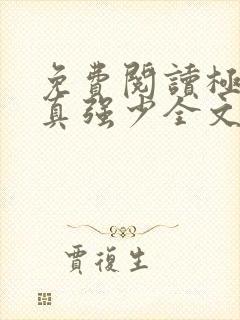 免費閱讀極
真強少全文
賈復生